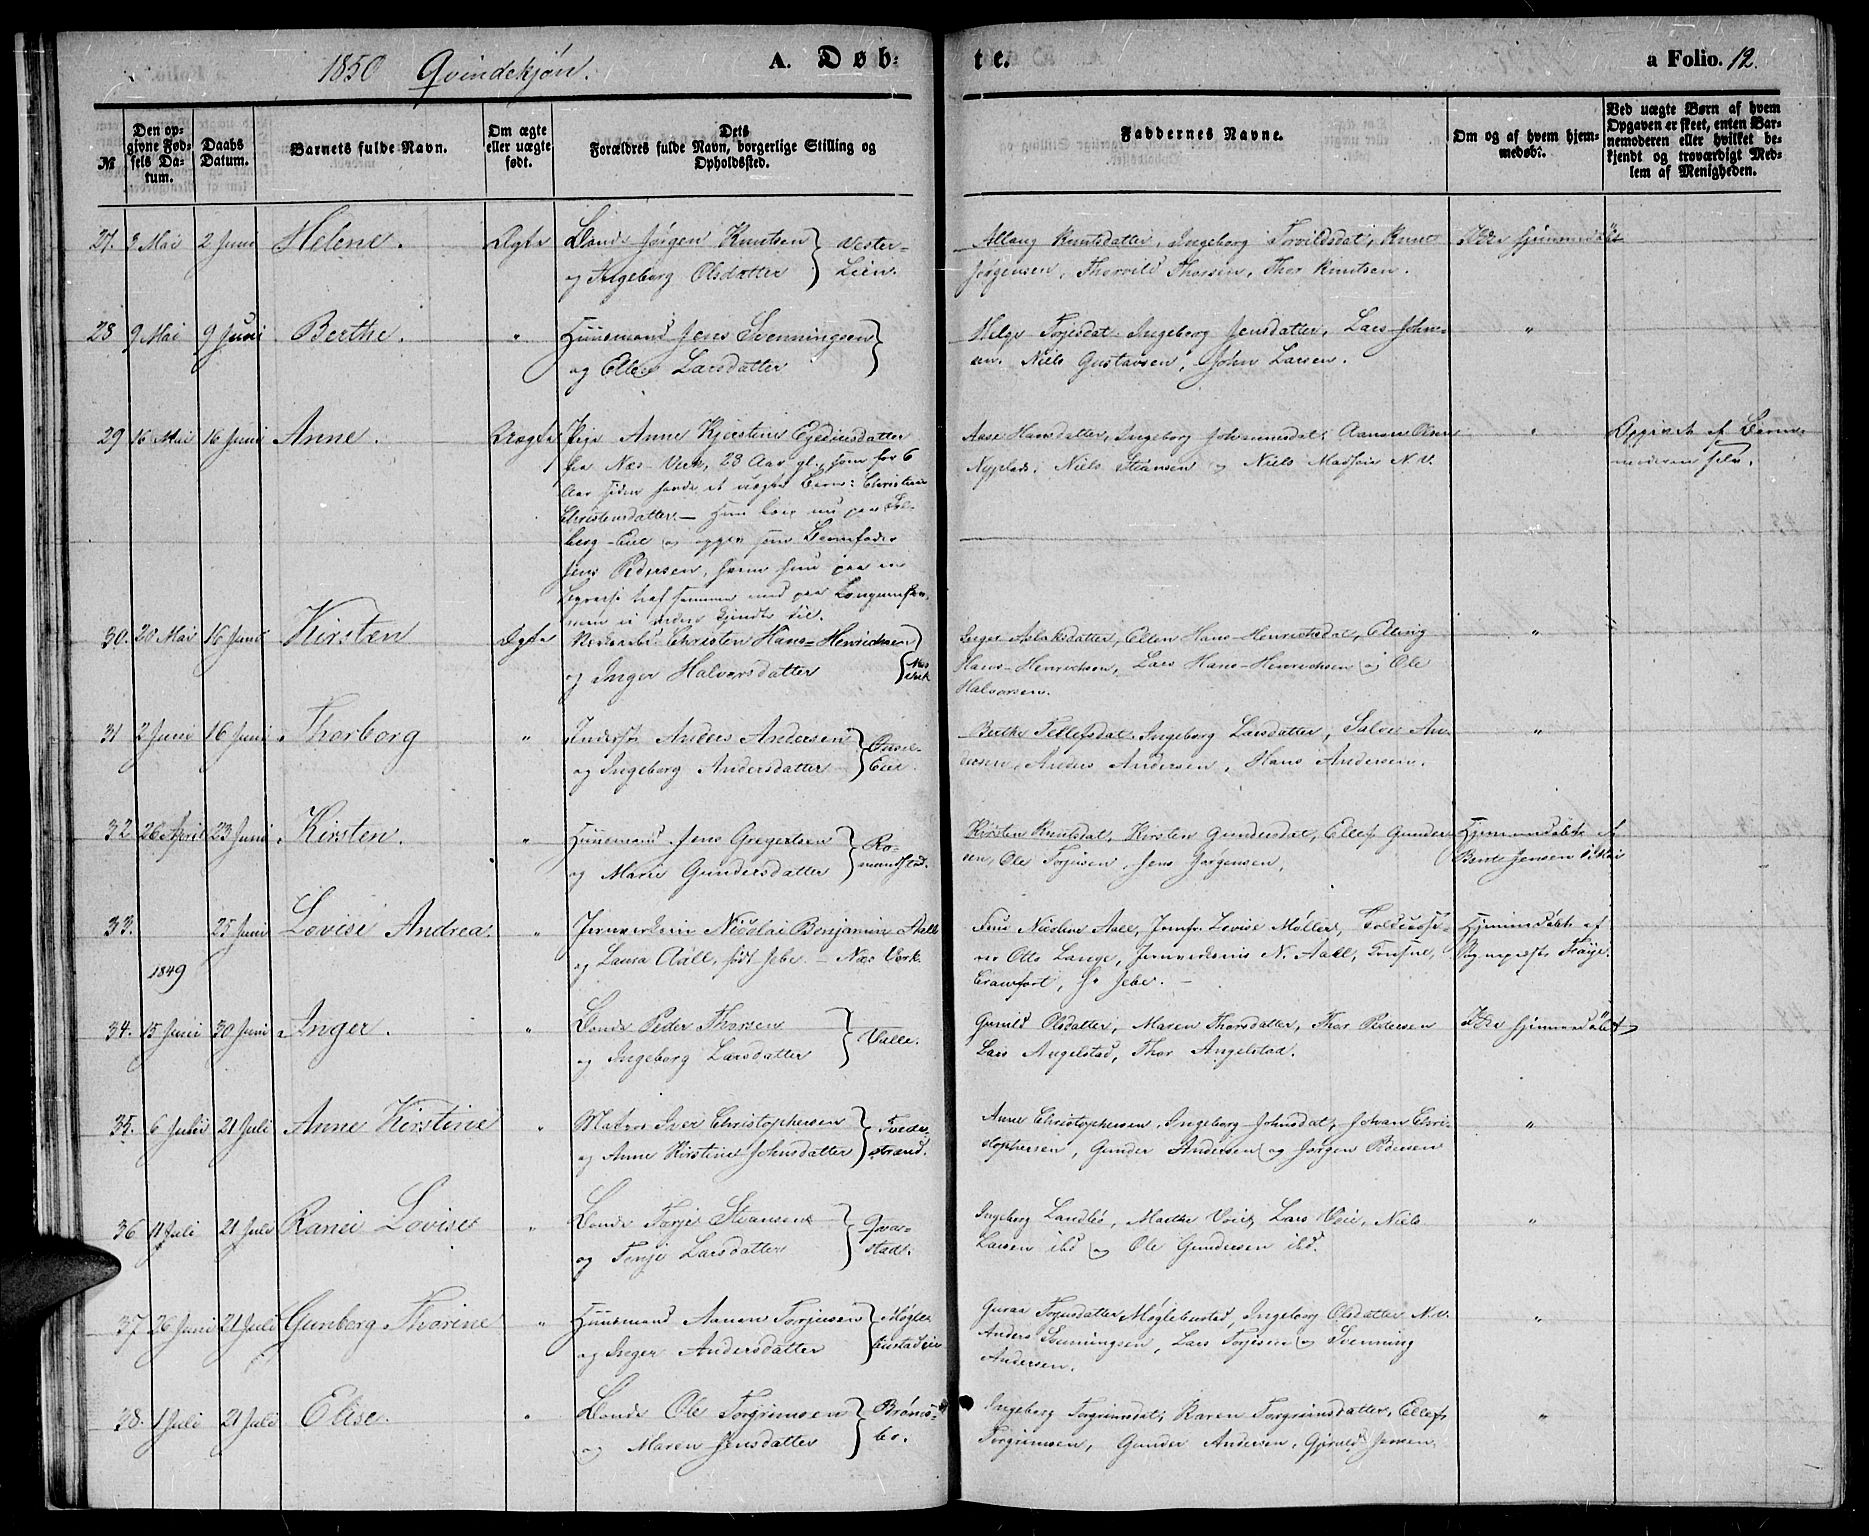 1850 Qvindekjøn. A. Døb- te. a Folio. 12.
№
Den opgivne Fødsels Datum.
Daabs Datum.
Barnets fulde Navn.
Om ægte eller uægte født.
Dets Forældres fulde Navn, borgerlige Stilling og Opholdssted.
Faddernes Navne.
Om og af hvem hjemmedøbt.
Ved uægte Børn af hvem Opgaven er skeet, enten Barnemoderen eller hvilket bekjendt og troværdigt Medlem af Menigheden.
27. 3 Mai 2 Juni Helene. Ægte Bonde Jørgen Knutsen Vester-
og Ingeborg Olsdatter Lien.
Aslaug Knutsdatter, Ingeborg Torvildsdat, Knut Ikke hjemmedøbt
Jørgensen, Thorvild Thorsen, Thor Knutsen.
28 9 Mai 9 Juni Berthe. " Huusmand Jens Svenningsen
og Ellen Larsdatter
Helge Torjesdat. Ingeborg Jensdatter, Lars John- "
sen. Niels Gustavsen, John Larsen.
29 16 Mai 16 Juni Anne. Uægte Pige Anne Kjerstine Egediusdatter
fra Næs-Verk, 28 Aar gl., som for 6
Aar siden havde et uægte Barn: Christine
Christensdatter. — Hun boer nu paa Sol-
berg-Eie og opgav som Barnefader
Jens Pedersen, hvem hun paa en
Aase Hansdatter, Ingeborg Johannesdat, Aanon Olsen " Opgivet af Barne-
Nyplads. Niels Stiansen og Niels Madsen N.V. moderen selv.
30. 20 Mai 16 Juni Kirsten Ægte Christen Hans-Henrichsen Næs
og Inger Halvorsdatter Verk
Inger Aslaksdatter, Ellen Hans-Henrichsdat, Ellevig "
Hans-Henrichsen, Lars Hans-Henrichsen og Ole
Halvorsen.
31 2 Juni 16 Juni Thorborg " Inderst Anders Andersen
og Ingeborg Andersdatter Eie.
Berthe Tellefsdat. Ingeborg Larsdatter, Salve An- "
dersen, Anders Andersen, Hans Andersen.
32 26 April 23 Juni Kirsten. " Huusmand Jens Gregertsen Ro-
og Marie Gundersdatter mundstad.
Kirsten Knutsdat, Kirsten Gundersdat, Ellef Gunder- Hjemmedøbt af
sen, Ole Torjusen, Jens Jørgensen. Bente Jensen i Mai
33. 25 Juni Lovise Andrea. " Jernverkseier Nicolai Benjamin Aall
1849 og Laura Aall, født Jebe. — Næs Verk.
Frue Nicoline Aall, Jomfr. Lovise Møller, Toldcasse- Hjemmedøbt af
rer Otto Lange, Jernverkseier N. Aall,
Crawfort, Hr Jebe. —
34. 15 Juni 30 Juni Inger. " Bonde Peder Thorsen
og Ingeborg Larsdatter Valle.
Gunild Olsdatter, Maren Thorsdatter, Thor Pedersen Ikke hjemmedøbt
Lars Angelstad, Thor Angelstad.
35. 6 Juli 21 Juli Anne Kirstine " Matros Iver Christophersen Tvede-
og Anne Kirstine Johnsdatter strand.
Anne Christophersen, Ingeborg Johnsdat, Johan Chri- "
stophersen, Gunder Andersen og Jørgen Pedersen
36 11 Juli 21 Juli Ranei Lovise " Bonde Torje Stiansen Qvar-
og Terje Larsdatter stad.
Ingeborg Landbø, Marthe Voie, Lars Voie, Niels "
Larsen ibd og Ole Gundersen ibd.
37 26 Juni 21 Juli Gunborg Thorine " Huusmand Aanon Torjusen Møgle-
og Inger Andersdatter bustadeie
Guraa Torjusdatter Møglebustad, Ingeborg Olsdatter N.V. "
Anders Svenningsen, Lars Torjusen og Svenning
Andersen.
38. 1 Juli 21 Juli Elise. " Bonde Ole Torgrimsen Brøms-
og Maren Jensdatter bo.
Ingeborg Torgrimsdat, Karen Torgrimsdatter, Ellef "
Torgrimsen, Gunder Andersen, Gjeruld Jensen.